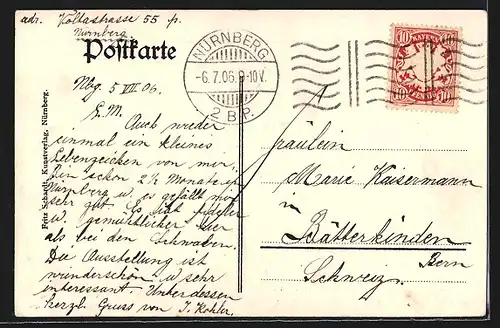 adr. Voltastrasse 55 p.
Nürnberg.
Postkarte
Nbg. 5 VII 06.
L. M.
Auch wieder
einmal ein kleines
Lebenzeichen von mir.
Bin schon 2½ Monate in
Nürnberg u. es gefällt mir
sehr gut. Es ist fideler
u. gemütlicher hier
als bei den Schwaben.
Die Ausstellung ist
wunderschön u. sehr
interessant. Unterdessen
herzl. Gruss von J. Kohler.
Fritz Schardt, Kunstverlag, Nürnberg.
NÜRNBERG
-6.7.06.9-10V.
2 B.P.
10 BAYERN 10
Fräulein
Marie Kaisermann
in
Bätterkinden
Bern
Schweiz.